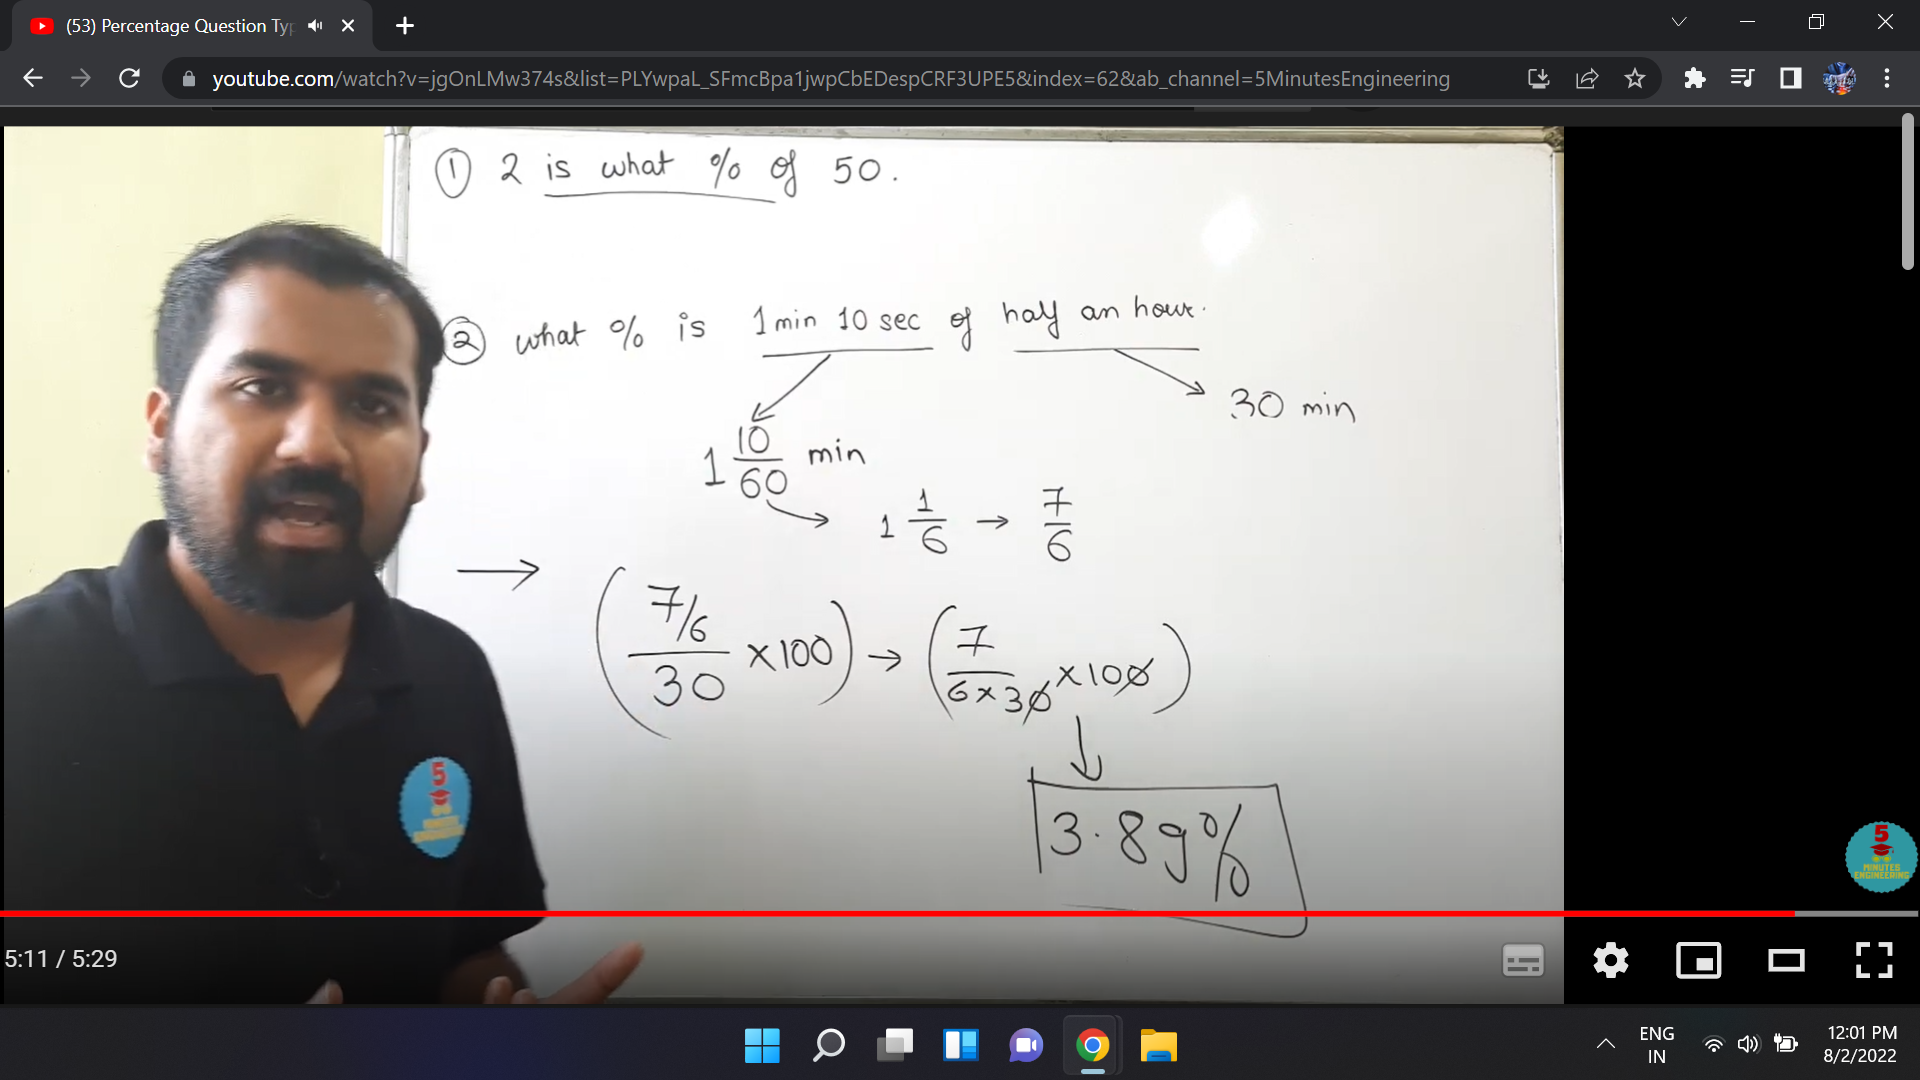 (53) Percentage Question Typ
youtube.com/watch?v=jgOnLMw374s&list=PLYwpaL_SFmcBpa1jwpCbEDespCRF3UPE5&index=62&ab_channel=5MinutesEngineering
① 2 is what % of 50.
② what % is 1min 10 sec of half an hour.
30 min
1 10/60 min
1 1/6 → 7/6
→ (7/6/30 ×100) → (7/6×30 ×100)
3.89%
5
MINUTES
ENGINEERING
5
MINUTES
ENGINEERING
5:11 / 5:29
ENG
IN
12:01 PM
8/2/2022